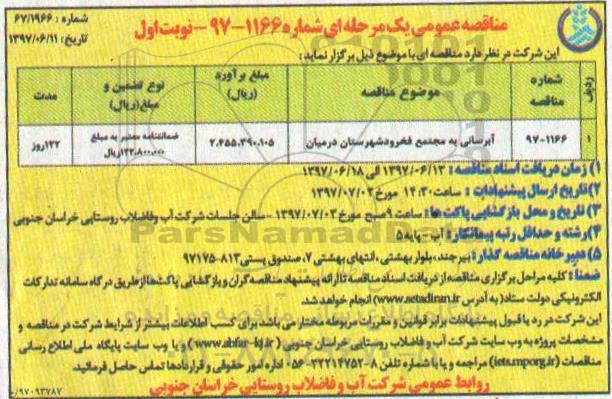 شماره : ۶۷/۱۹۶۶
تاریخ: ۱۳۹۷/۰۶/۱۱
مناقصه عمومی یک مرحله ای شماره ۱۱۶۶-۹۷ - نوبت اول
این شرکت در نظر دارد مناقصه ای با موضوع ذیل برگزار نماید:
ردیف شماره مناقصه موضوع مناقصه مبلغ برآورد (ریال) نوع تضمین و مبلغ(ریال) مدت
۱ ۱۱۶۶-۹۷ آبرسانی به مجتمع فخرود شهرستان درمیان ۲.۴۵۵.۳۹۰.۱۰۵ ضمانتنامه معتبر به مبلغ ۱۲۳.۸۰۰.۰۰۰ریال ۱۲۲روز
۱) زمان دریافت اسناد مناقصه : ۱۳۹۷/۰۶/۱۳ الی ۱۳۹۷/۰۶/۱۸
۲)تاریخ ارسال پیشنهادات : ساعت ۱۴:۳۰ مورخ ۱۳۹۷/۰۷/۰۲
۳) تاریخ و محل بازگشایی پاکت ها: ساعت ۹ صبح مورخ ۱۳۹۷/۰۷/۰۳ - سالن جلسات شرکت آب وفاضلاب روستایی خراسان جنوبی
۴)رشته و حداقل رتبه پیمانکار: آب-پایه۵
۵) دبیرخانه مناقصه گذار: بیرجند، بلوار بهشتی ،انتهای بهشتی ۷، صندوق پستی ۸۱۳-۹۷۱۷۵
ضمنا : کلیه مراحل برگزاری مناقصه از دریافت اسناد مناقصه تا ارائه پیشنهاد مناقصه گران و بازگشایی پاکت‌ها از طریق درگاه سامانه تدارکات
الکترونیکی دولت ستاد( به آدرس www.setadiran.ir) انجام خواهد شد.
این شرکت در رد یا قبول پیشنهادات برابر قوانین و مقررات مربوطه مختار می باشد برای کسب اطلاعات بیشتر از شرایط شرکت در مناقصه و
مشخصات پروژه به وب سایت شرکت آب و فاضلاب روستایی خراسان جنوبی ( www.abfar-kj.ir ) و یا وب سایت پایگاه ملی اطلاع رسانی
مناقصات (iets.mporg.ir) مراجعه و یا با شماره تلفن ۸-۳۲۲۱۴۷۵۲-۰۵۶ اداره امور حقوقی و قراردادها تماس حاصل فرمائید.
روابط عمومی شرکت آب و فاضلاب روستایی خراسان جنوبی
ParsNamadData